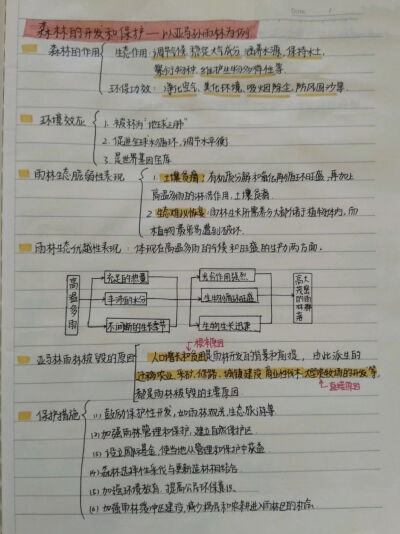 Date
森林的开发和保护——以亚马孙雨林为例
森林的作用
生态作用：调节气候 稳定大气成分 涵养水源，保持水土，
繁衍物种，维护生物多样性等
环保功效：净化空气，美化环境，吸烟除尘，防风固沙等
环境效应
1. 被称为"地球之肺"
2. 促进全球水循环，调节水平衡
3. 是世界基因宝库
雨林生态脆弱性表现
1. 土壤贫瘠：有机质分解和养化再循环旺盛，再加上
高温多雨的淋洗作用，土壤贫瘠
2. 生态难以恢复：雨林生长所需养分大部储于植物体内，而
植物最易遭到破坏
雨林生态优越性表现：体现在高温多雨的气候和旺盛的生物力两方面。
高温多雨
充足的热量
丰沛的水分
不间断的生长季节
光合作用强烈
生物循环旺盛
生物生长迅速
高大茂密的雨林群落
根本原因
亚马孙雨林被毁的原因
人口增长和贫困是雨林开发的背景和前提，由此派生的
迁移农业，采矿、修路、城镇建设，商业性伐木，大型农牧场的开发等，
都是雨林被毁的主要原因
直接原因
保护措施
(1) 鼓励保护性开发，如雨林观光，生态旅游等
(2) 加强雨林管理和保护，建立自然保护区
(3) 设立国际基金，使当地从管理和保护中获益
(4) 森林选择性采伐与更新造林相结合
(5) 加强环境教育，提高公民环保意识。
(6) 加强雨林缓冲区建设，减少移民和农耕进入雨林区的机会。